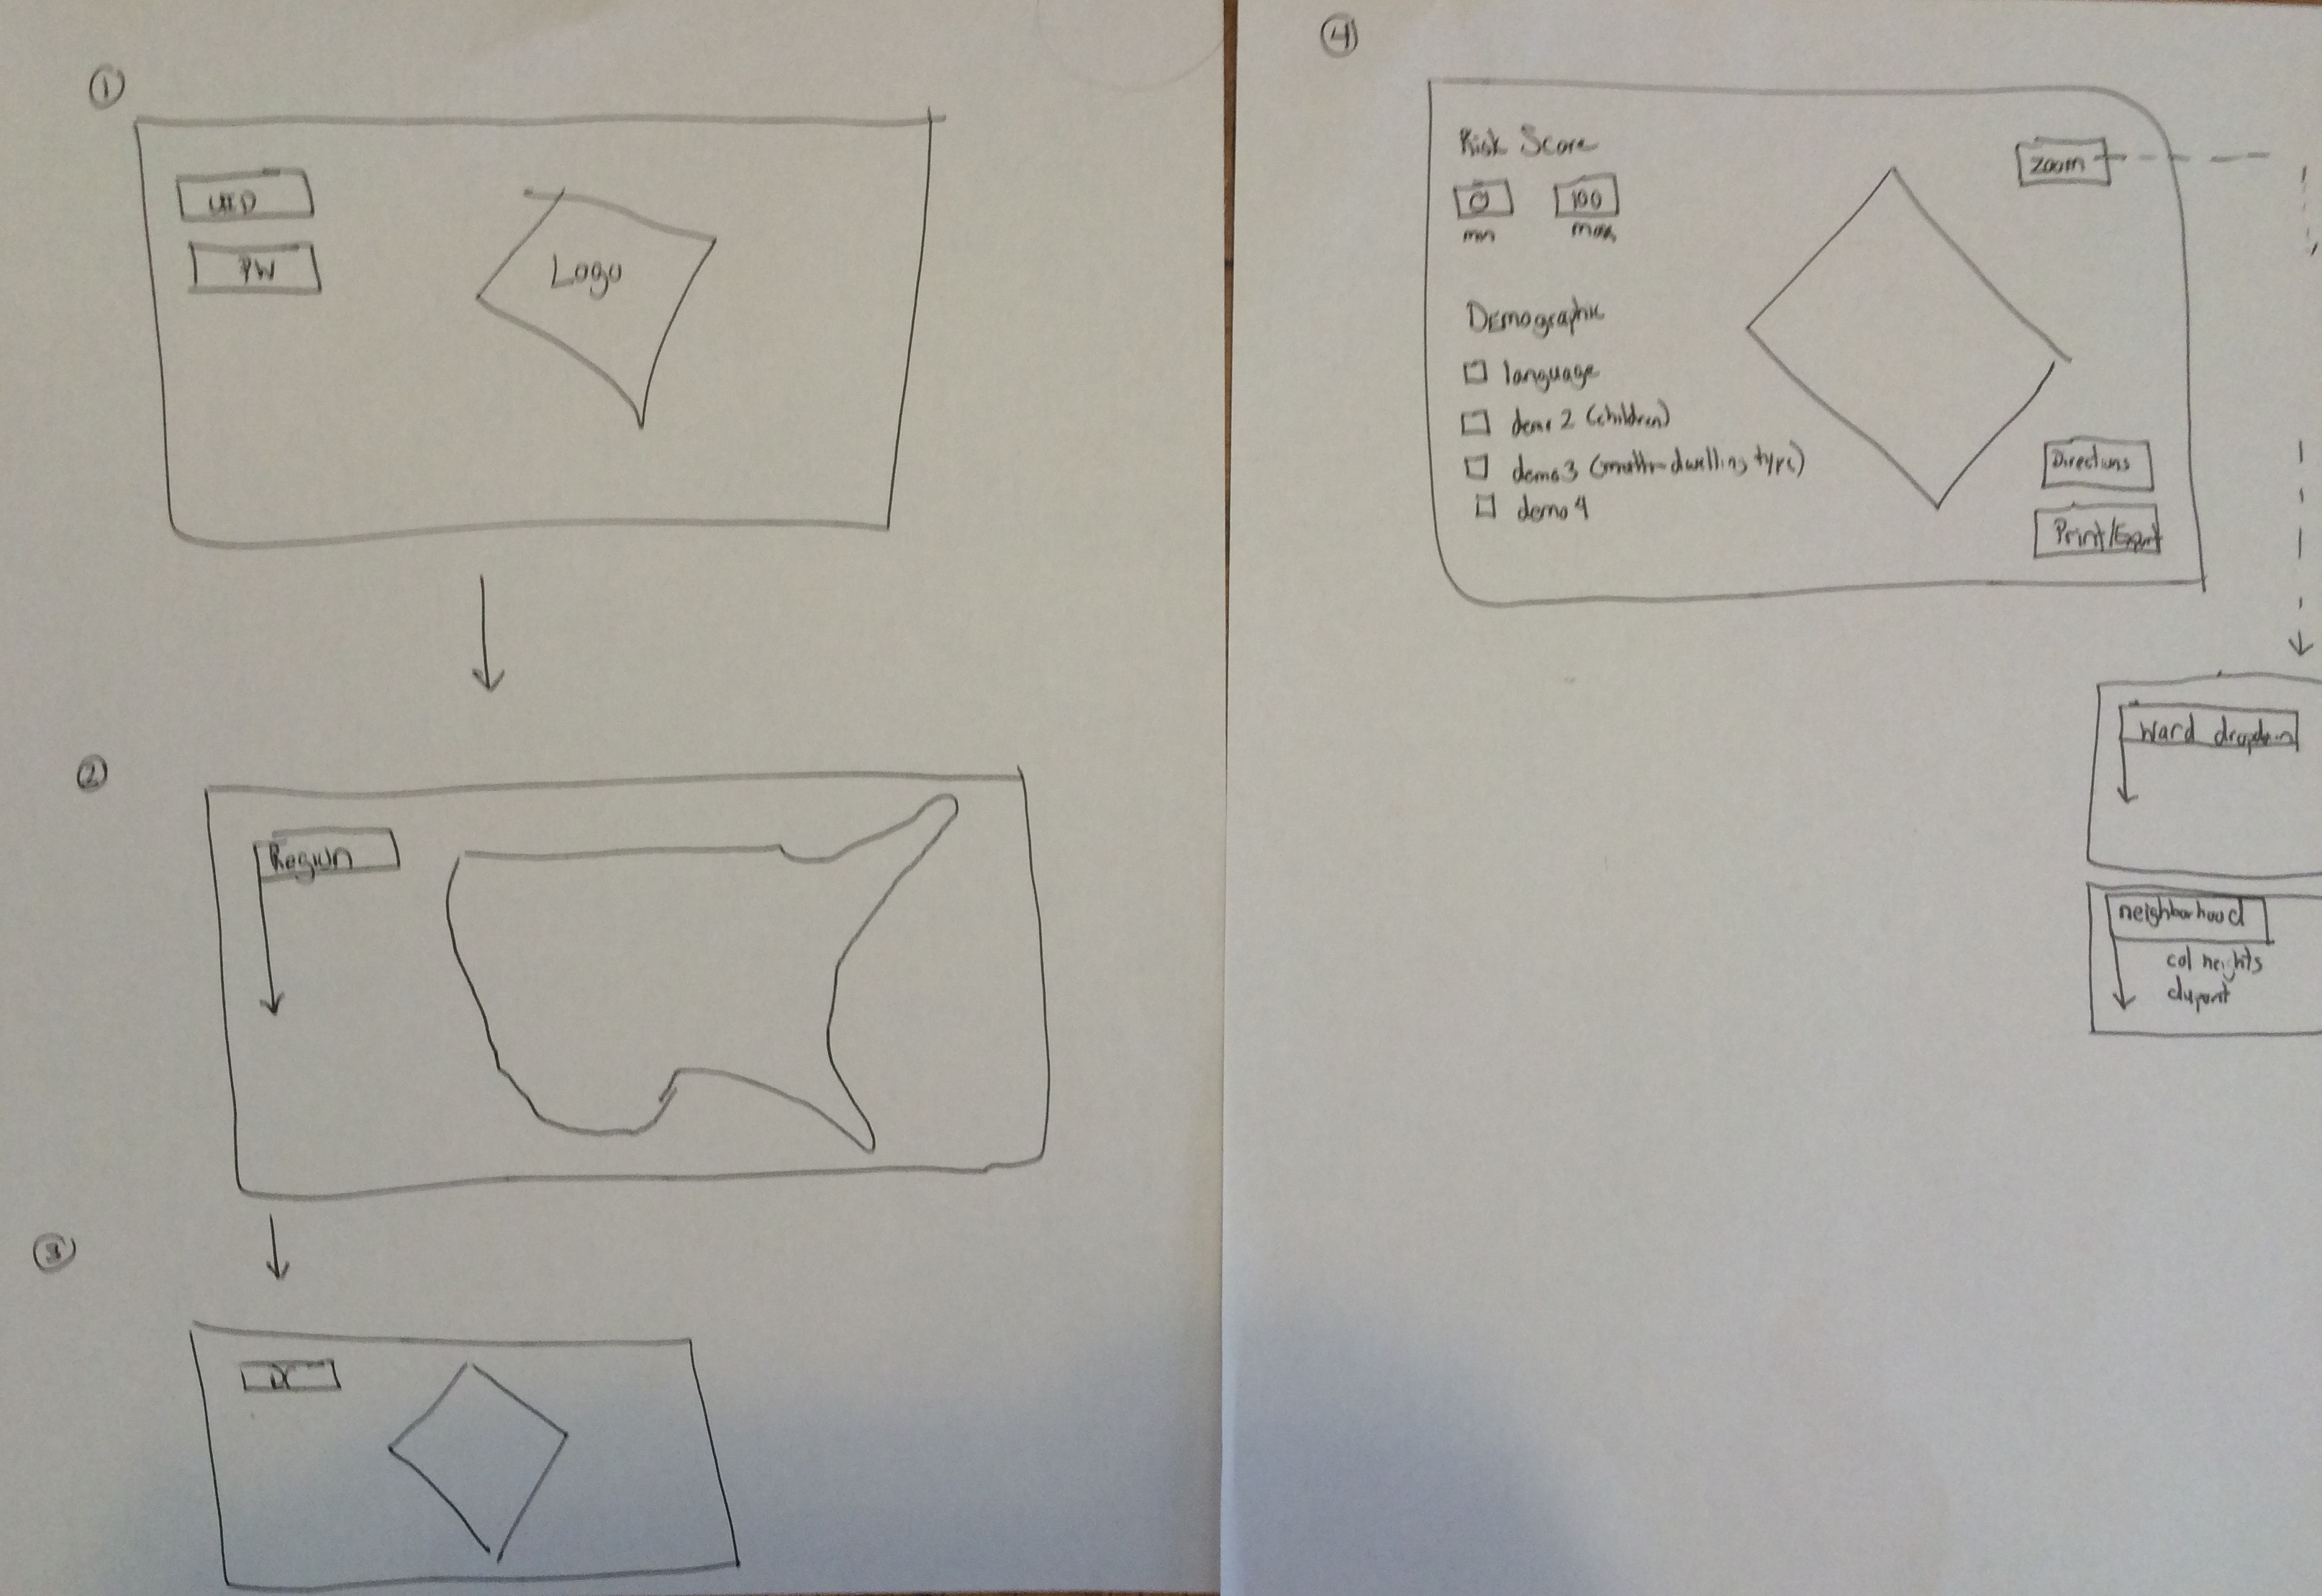 1
UID
PW
Logo
2
Region
3
DC
4
Risk Score
0
100
min
max
Zoom
Demographic
language
demo 2 (children)
demo3 (multi-dwelling type)
demo 4
Directions
Print/Export
Ward dropdown
neighborhood
col heights
dupont